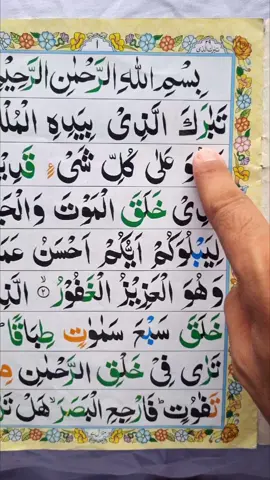 بِسْمِ اللهِ الرَّحْمٰنِ الرَّحِيْمِ
تَبٰرَكَ الَّذِىْ بِيَدِهِ
عَلٰى كُلِّ شَىْءٍ
خَلَقَ الْمَوْتَ
لِيَبْلُوَكُمْ اَيُّكُمْ اَحْسَنُ
وَهُوَ الْعَزِيْزُ الْغَفُوْرُ ۙ﴿۲﴾
خَلَقَ سَبْعَ سَمٰوٰتٍ طِبَاقًا ؕ
تَرٰى فِىْ خَلْقِ الرَّحْمٰنِ
تَفٰوُتٍ ؕ فَارْجِعِ الْبَصَرَ ۙ هَلْ